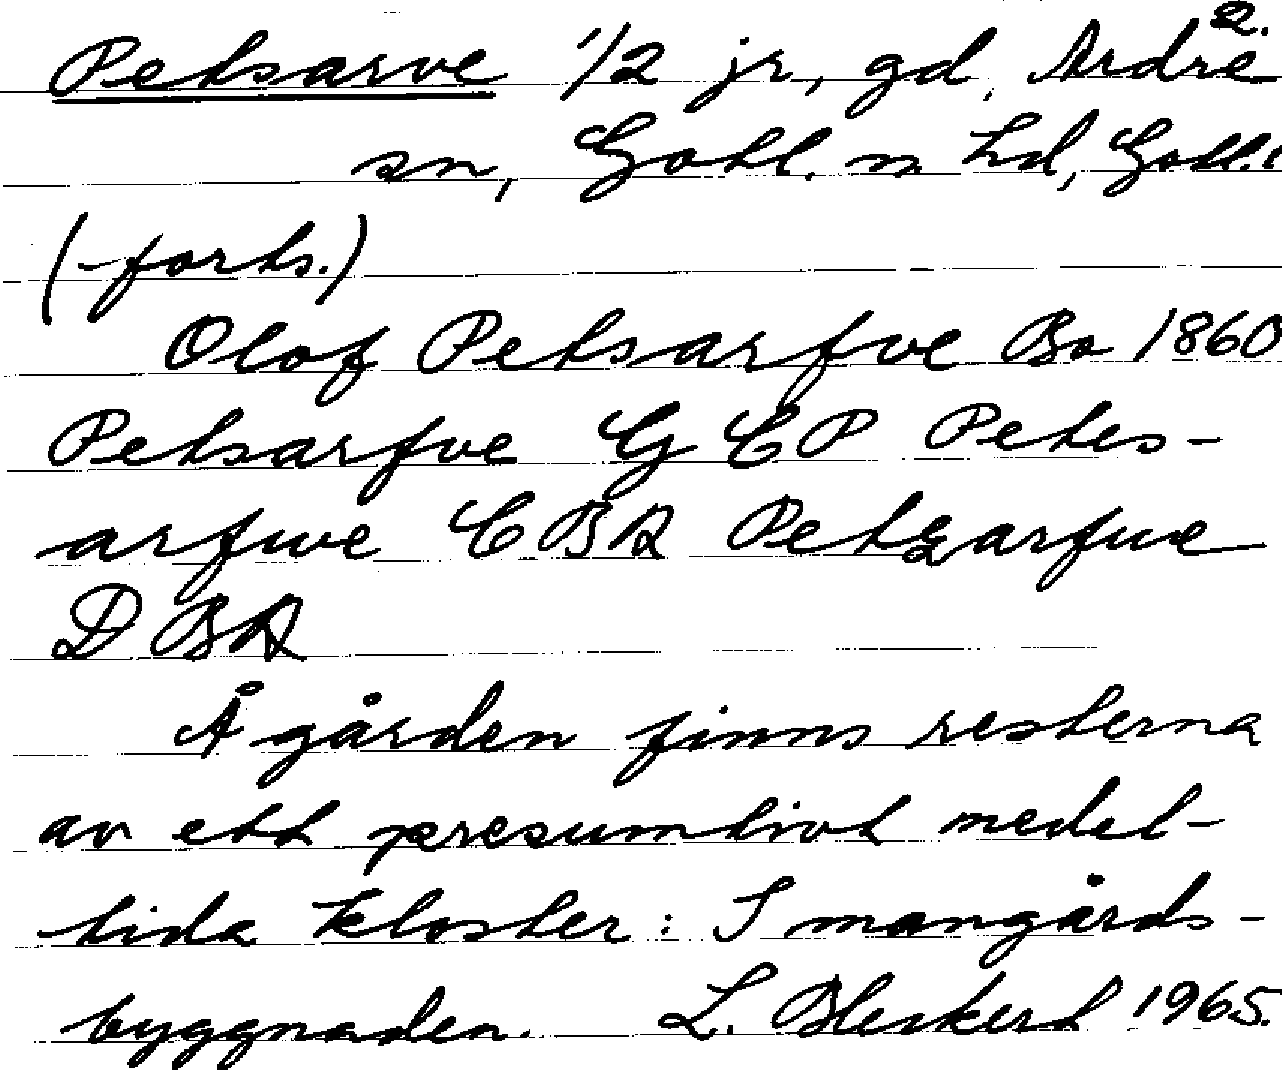 2.
Petsarve 1/2 jr, gd, Ardre
sn, Gotl. n. hd, Gotl. l
(-forts.)
Olof Petsarfve Bo 1860
Petsarfve G C P Petes-
arfwe C BA Petzarfue
D BA
Å gården finns resterna
av ett presumtivt medel-
tida kloster: I mangårds-
byggnaden. L. Bleckert 1965.